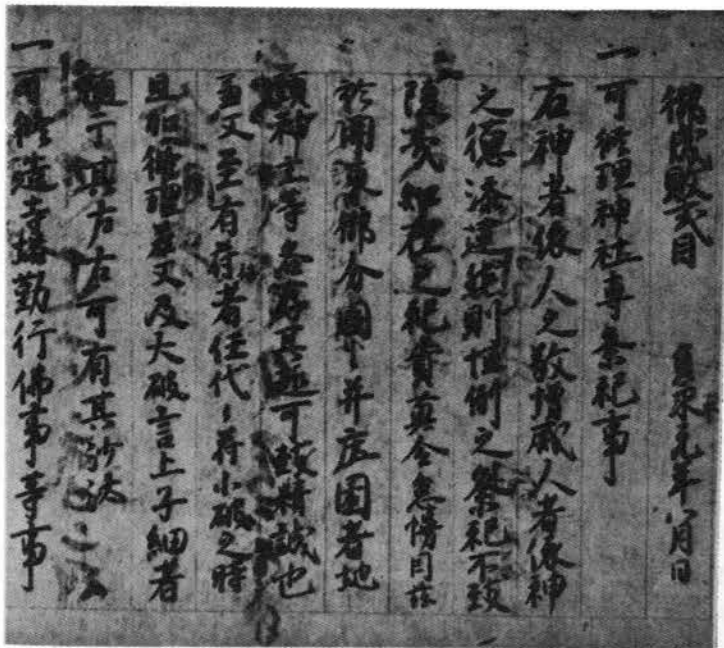 御成敗式目　貞永元年八月日
一可修理神社専祭祀事
右神者依人之敬増威人者依神
之徳添運然則恒例之祭祀不致
陵夷如在之礼奠莫令怠慢因茲
於関東御分国々并庄園者地
頭神主等各存其趣可致精誠也
兼又至有封社者任代々符小破之時
且加修理若又及大破言上子細者
随于其左右可有其沙汰
一可修造寺塔勤行佛事等事